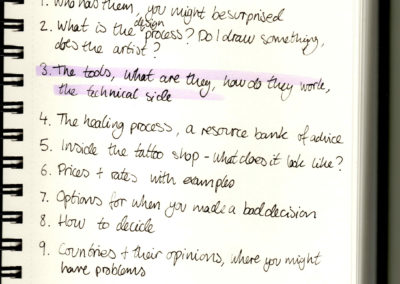 1. Who has them, you might be surprised
design
2. What is the process? Do I draw something,
does the artist?
3. The tools, what are they, how do they work,
the technical side
4. The healing process, a resource bank of advice
5. Inside the tattoo shop - what does it look like?
6. Prices + rates with examples
7. Options for when you made a bad decision
8. How to decide
9. Countries + their opinions, where you might
have problems